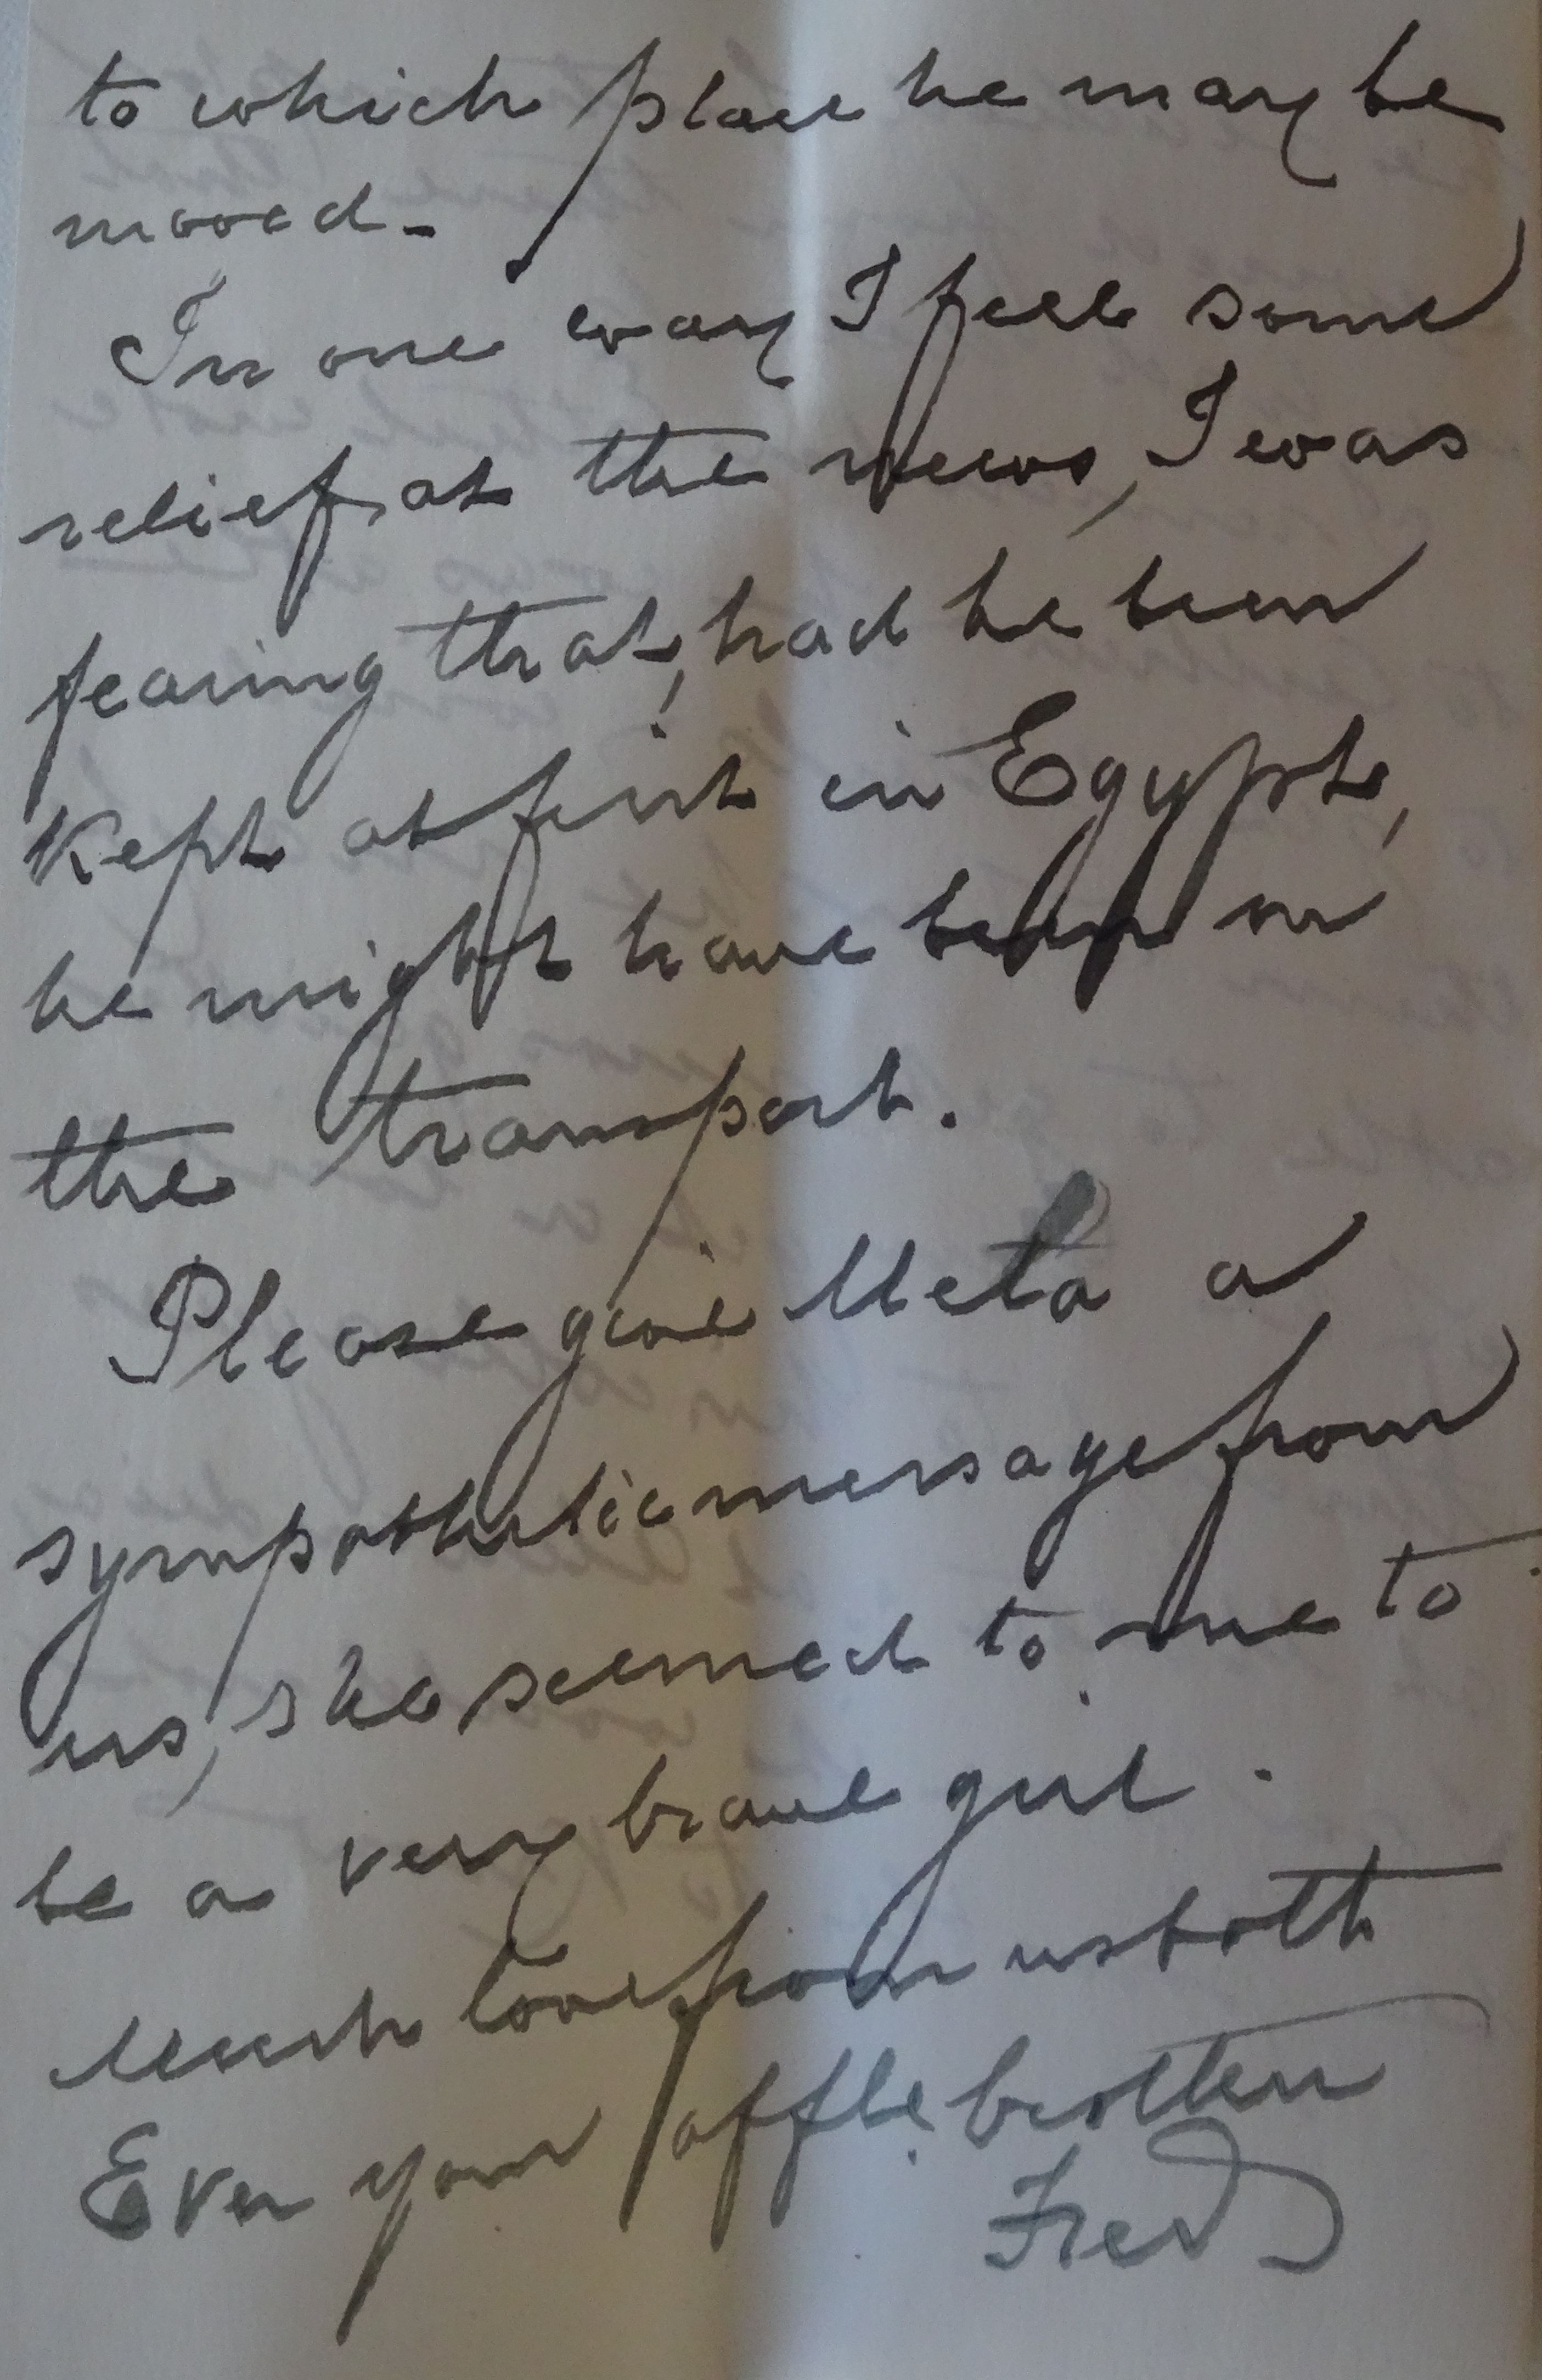 to which place he may be
moved -
In one way I feel some
relief at the news, I was
fearing that, had he been
kept at first in Egypt,
he might have been in
the transport.
Please give Meta a
sympathetic message from
us, she seemed to me to
be a very brave girl.
Much love from us both
Ever your affte brother
Fred